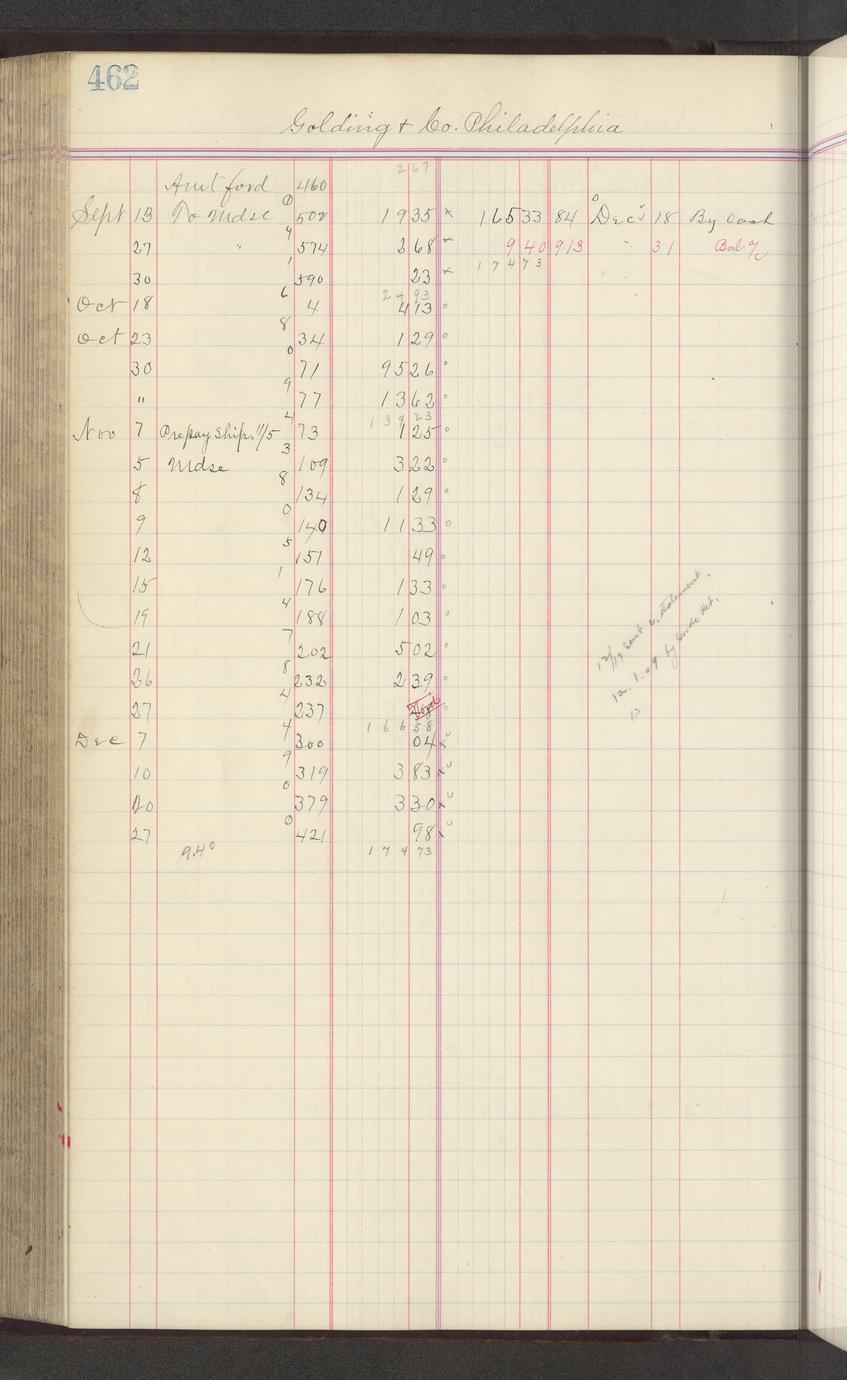 462
Golding & Co. Philadelphia
2 67
Amt ford 460
Sept 13 To Mdse 0 502 19 35 x 165 33 84 Dec 18 By Cash
27 " 4 574 2 68 x 9 40 913 " 31 Bal
174 73
30 1 590 23 x
24 93
Oct 18 6 4 4 13 o
Oct 23 8 34 1 29 o
30 0 71 95 26 o
" 9 77 13 62 o
139 23
Nov 7 Prepay Ship. 11/5 4 73 1 25 o
5 Mdse 3 109 3 22 o
8 8 134 1 29 o
9 0 140 11 33 o
12 5 151 49 o
15 1 176 1 33 o
19 4 188 1 03 o
21 7 202 5 02 o
26 8 232 2 39 o
27 4 237
166 58
Dec 7 4 300 04 x
10 9 319 3 83 x
20 0 379 3 30 x
27 0 421 98 x
9.40 174 73
12/17 Sent statement.
1.09 by
12